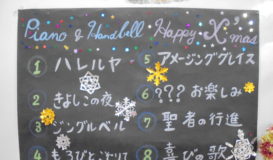 Piano & Handbell Happy X'mas
1 ハレルヤ
2 きよしこの夜
3 ジングルベル
4 もろびとこぞりて
5 アメージンググレイス
6 ??? お楽しみ
7 聖者の行進
8 喜びの歌